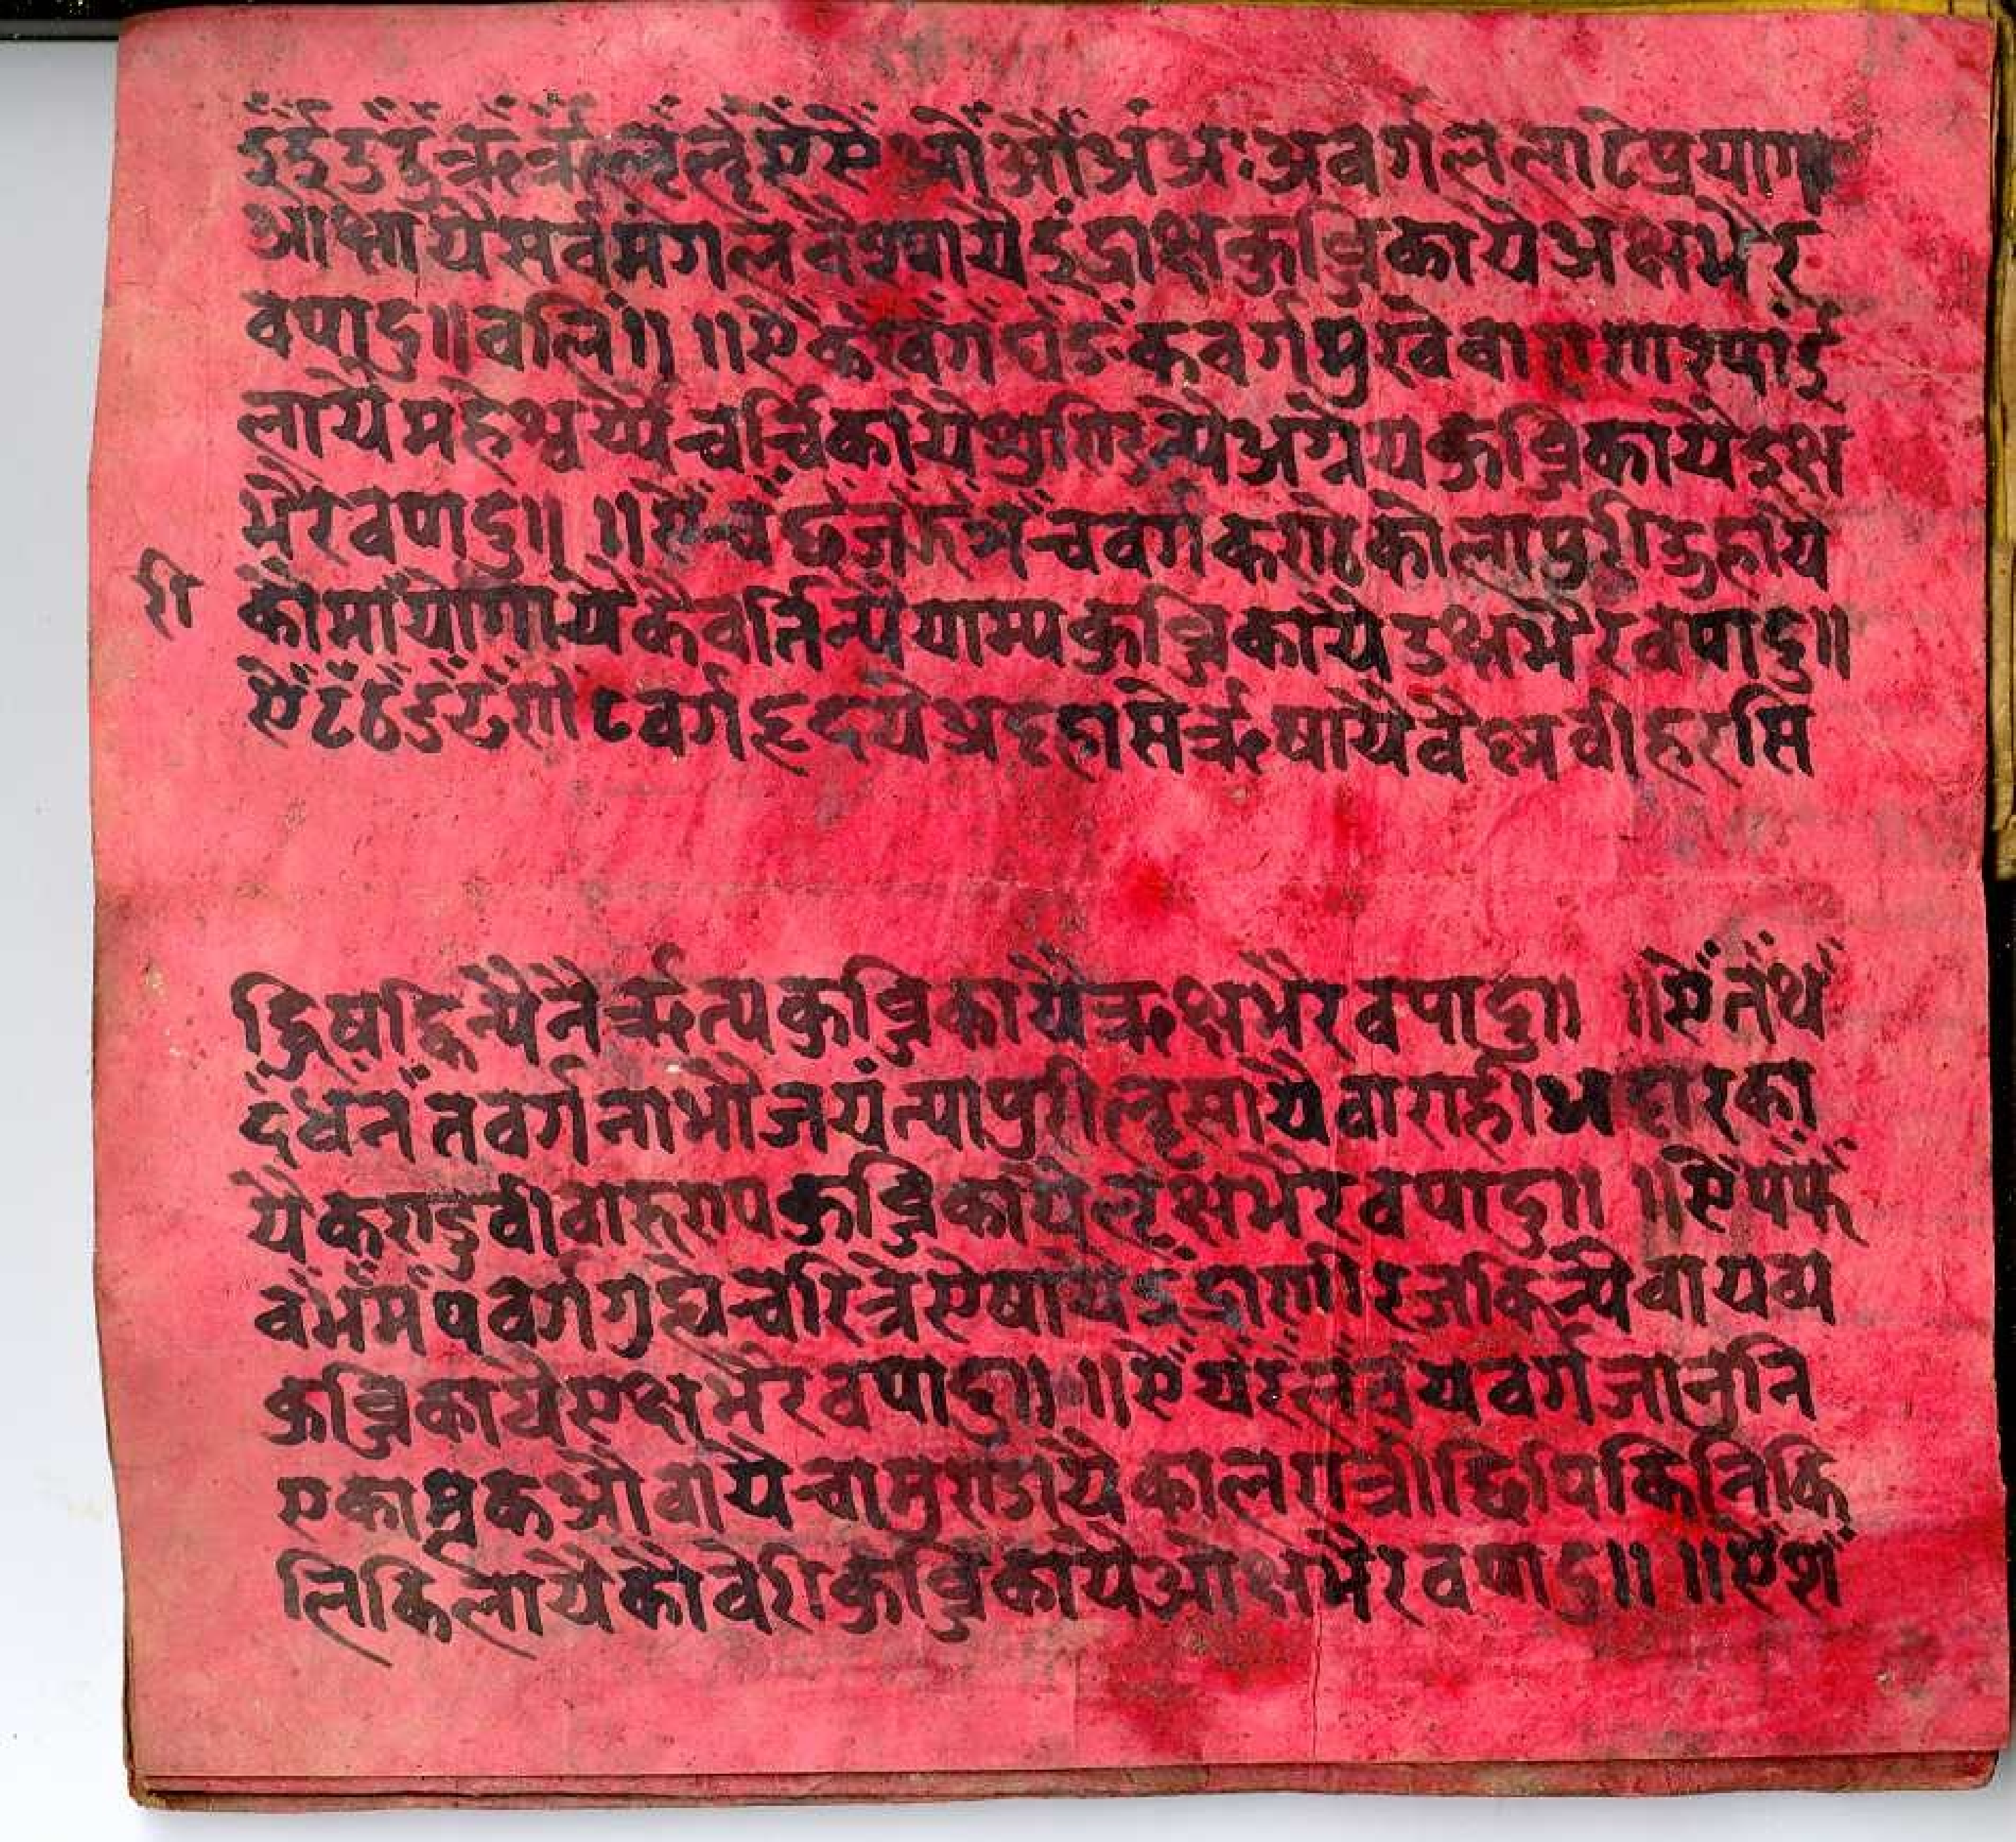 इँईँउँऊँऋँॠँऌँॡँएँऐँ ओँऔँअंअःअवर्गललाटेप्रयाग
आक्षायैसर्वमंगलवैश्वायैइंद्राक्षकुब्जिकायैअक्षभैर
वपादु॥वलिं॥ ॥ऐँकँखँगँघँङँकवर्गमुखेवा
लायैमहेश्वर्य्यैचर्चिकायै अग्नेयकुब्जिकायैइक्ष
भैरवपादु॥ ॥ऐँचँछँजँझँञँचवर्गकराटेकोलापुरीउहायै
री
कौमा कैवर्तिन्यैयाम्यकुब्जिकायैउक्षभैरवपादु॥
ऐँटँठँडँढँणँटवर्गहृदयेअट्टहासेॠषायैवैष्णवीहरसि
द्धिषद्धिन्यैनैर्ऋत्यकुब्जिकायैऋक्षभैरवपादु॥ ॥ऐँतँथँ
दँधँनँतवर्गनाभौजयंन्यापुरीॡसायैवाराहीभट्टारका
यै वारुणपकुब्जिकायैऌक्षभैरवपादु॥ ॥ऐँपँफँ
वँभँमँपवर्गगुह्येचरित्रेऐषायैइंद्राणीरजकिन्यैवायव्य
कुब्जिकायैएक्षभैरवपादु॥ ॥ऐँयँरँलँवँयवर्गजानुनि
एकाम्रकऔवायैचामुण्डायैकालरात्री
लिकिलायैकौवेरीकुब्जिकायैओक्षभैरवपादु॥ ॥ऐँशँ